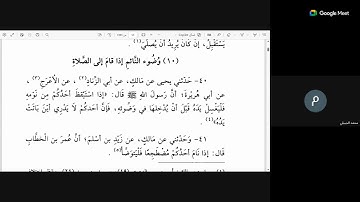 يَسْتَقْبِلُ، إِنْ كَانَ يُرِيدُ أَنْ يُصَلِّيَ(١).
(١٠) وُضُوءُ النَّائِمِ إِذَا قَامَ إِلَى الصَّلَاةِ
٤٠- حَدَّثَنِي يَحْيَى عَنْ مَالِكٍ، عَنْ أَبِي الزِّنَادِ(٢)، عَنِ الْأَعْرَجِ(٣)،
عَنْ أَبِي هُرَيْرَةَ؛ أَنَّ رَسُولَ اللَّهِ ﷺ قَالَ: «إِذَا اسْتَيْقَظَ أَحَدُكُمْ مِنْ نَوْمِهِ
فَلْيَغْسِلْ يَدَهُ قَبْلَ أَنْ يُدْخِلَهَا فِي وَضُوئِهِ، فَإِنَّ أَحَدَكُمْ لَا يَدْرِي أَيْنَ بَاتَتْ
يَدُهُ»(٤).
٤١- وَحَدَّثَنِي عَنْ مَالِكٍ، عَنْ زَيْدِ بْنِ أَسْلَمَ؛ أَنَّ عُمَرَ بْنَ الْخَطَّابِ
قَالَ: إِذَا نَامَ أَحَدُكُمْ مُضْطَجِعًا فَلْيَتَوَضَّأْ(٥).
Google Meet